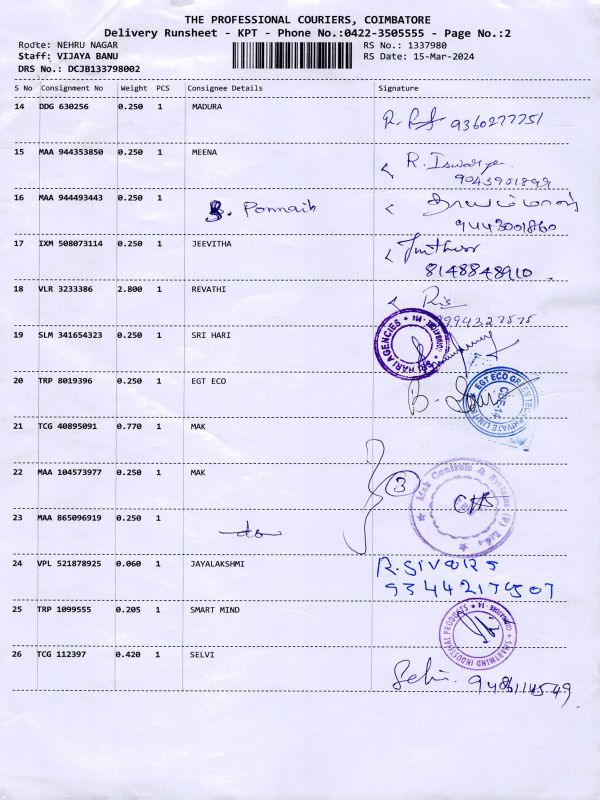 THE PROFESSIONAL COURIERS, COIMBATORE
Delivery Runsheet - KPT - Phone No.:0422-3505555 - Page No.:2
Route: NEHRU NAGAR RS No.: 1337980
Staff: VIJAYA BANU RS Date: 15-Mar-2024
DRS No.: DCJB133798002
S No Consignment No Weight PCS Consignee Details Signature
14 DDG 630256 0.250 1 MADURA
9360277751
15 MAA 944353850 0.250 1 MEENA
R. Iswarya
9043901899
16 MAA 944493443 0.250 1 B. Ponnaih
9443001860
17 IXM 508073114 0.250 1 JEEVITHA
8148848910
18 VLR 3233386 2.800 1 REVATHI
9994327575
19 SLM 341654323 0.250 1 SRI HARI
SRI HARI AGENCIES
20 TRP 8019396 0.250 1 EGT ECO
EGT ECO GREEN TECH PRIVATE LIMITED
CBE-14
21 TCG 40895091 0.770 1 MAK
22 MAA 104573977 0.250 1 MAK
3
Mak Controls & Systems (P) Ltd.
23 MAA 865096919 0.250 1 do
24 VPL 521878925 0.060 1 JAYALAKSHMI
R. SIVA
93442174507
25 TRP 1099555 0.205 1 SMART MIND
SMARTMIND INDUSTRIAL PRODUCTS
26 TCG 112397 0.420 1 SELVI
Selvi